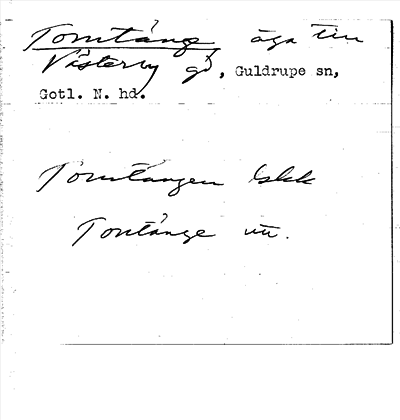 Tomtänge äga till
Västerby gd, Guldrupe sn,
Gotl. N. hd.
Tomtängen Iskk
Tontänge